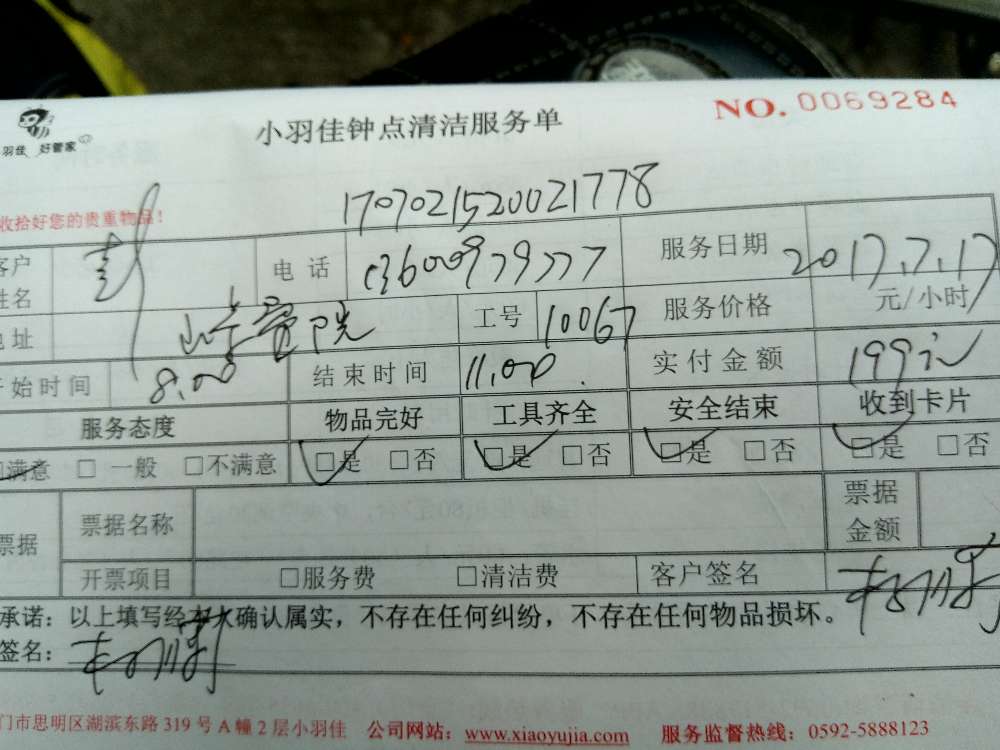 小羽佳钟点清洁服务单 NO. 0069284
羽佳 好管家
收拾好您的贵重物品!
170702152002177​8
客户姓名 彭 电话 13600979777 服务日期 2017.7.17
地址 工号 10067 服务价格 元/小时
开始时间 8:00 结束时间 11:00 实付金额 199元
服务态度 物品完好 工具齐全 安全结束 收到卡片
□满意 □一般 □不满意 □是 □否 □是 □否 □是 □否 □是 □否
票据 票据名称 票据金额
开票项目 □服务费 □清洁费 客户签名
承诺:以上填写经本人确认属实,不存在任何纠纷,不存在任何物品损坏。
签名:
门市思明区湖滨东路 319 号 A 幢 2 层小羽佳 公司网站:www.xiaoyujia.com 服务监督热线:0592-5888123